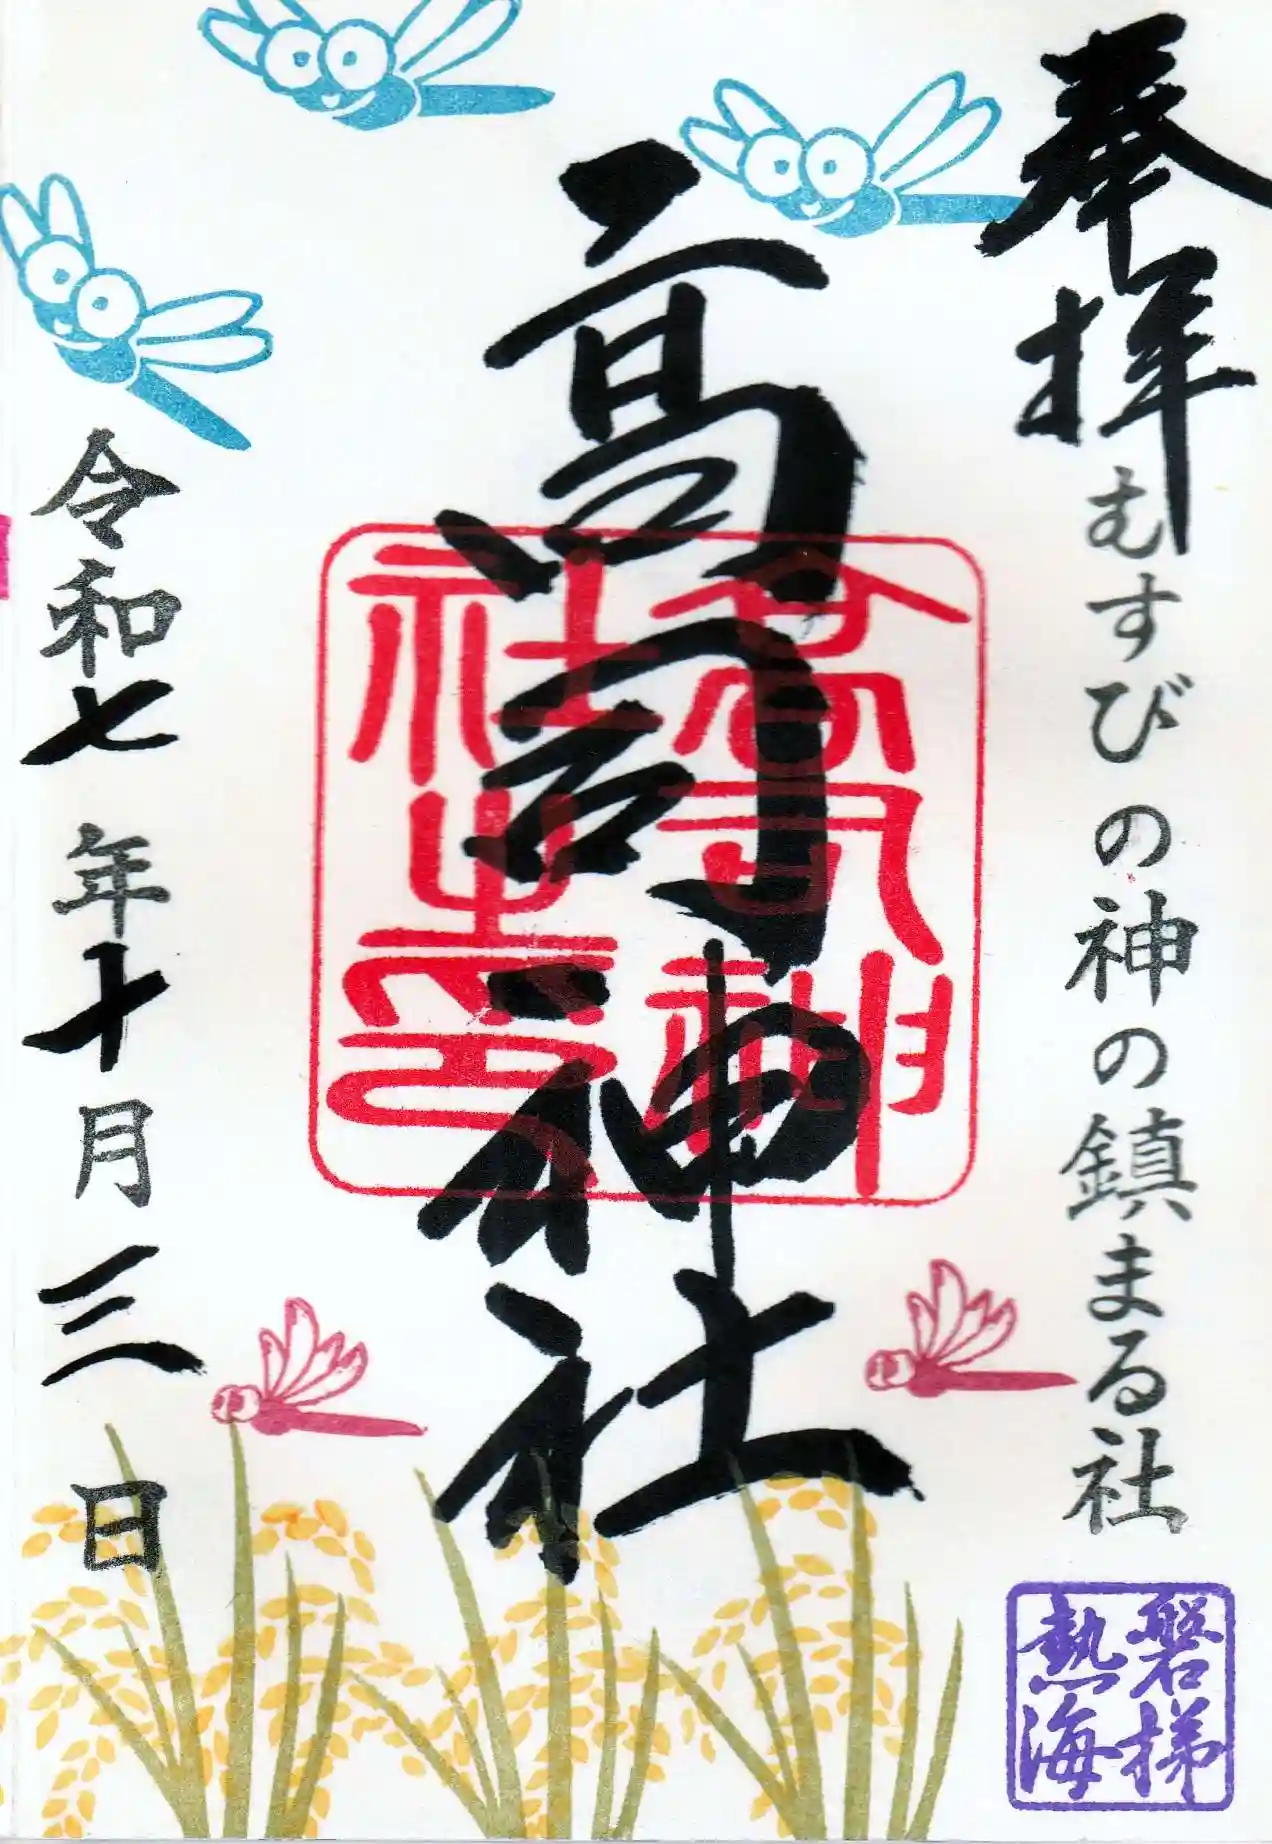 奉拝
むすびの神の神の鎮まる社
磐梯
熱海
高司神社
高司神
社之印
令和七年十月三日